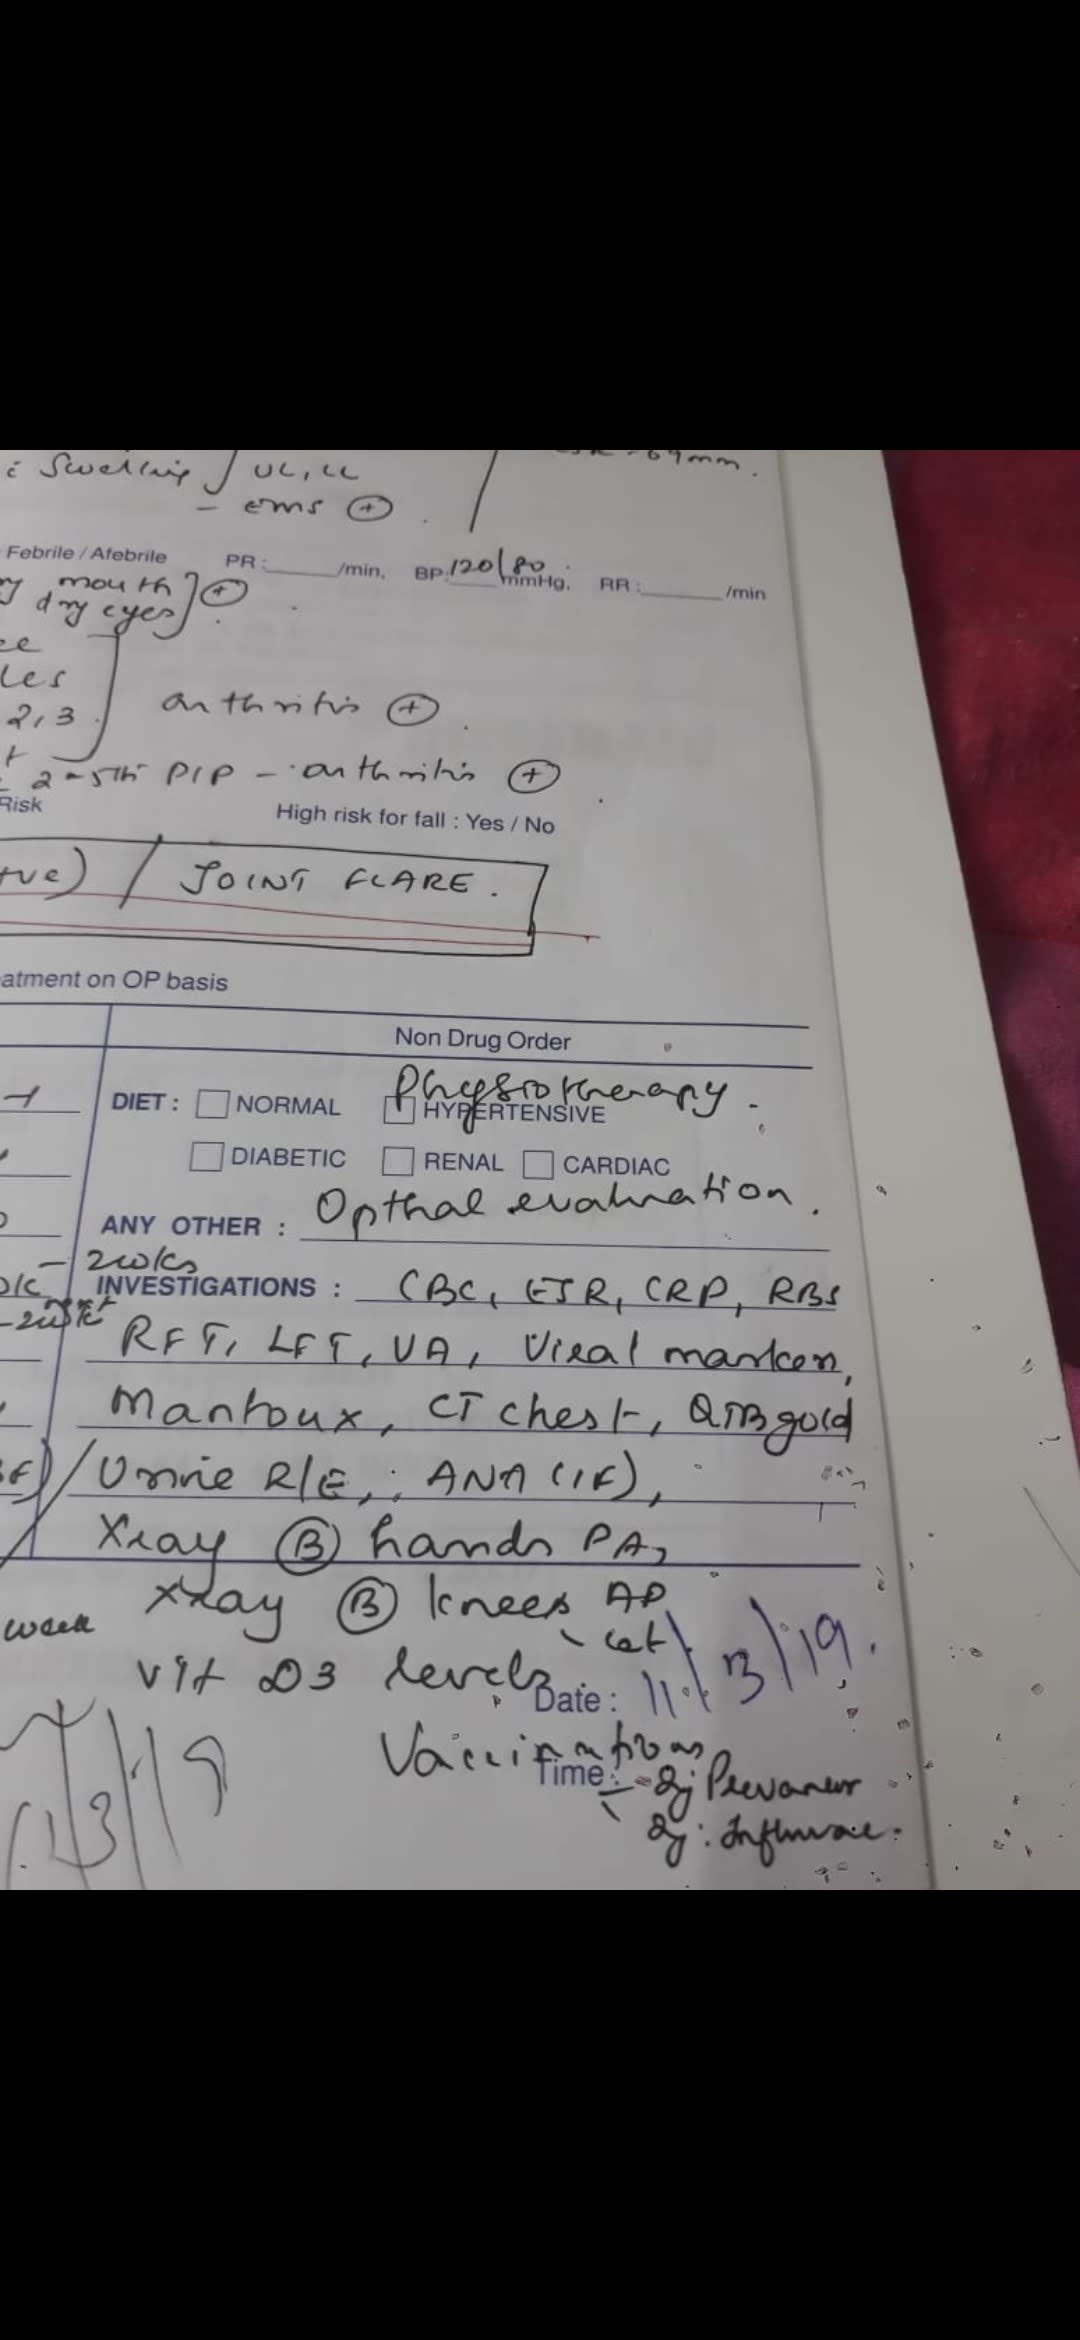 c̄ Swelling ] UL, LL
69mm.
- EMS (+) .
Febrile / Afebrile PR : /min, BP: 120/80 mmHg, RR : /min
mouth
dry eyes ] (+) .
2,3 ] arthritis (+) .
2-5th PIP - arthritis (+) .
Risk High risk for fall : Yes / No
+ve) / JOINT FLARE .
atment on OP basis
Non Drug Order
Physiotherapy .
DIET : NORMAL HYPERTENSIVE
DIABETIC RENAL CARDIAC
ANY OTHER : Opthal evaluation .
- 2wks
INVESTIGATIONS : CBC, ESR, CRP, RBS
RFT, LFT, UA, Viral markers,
Mantoux, CT chest, QTB gold
Urine R/E, ANA (IF),
Xray (B) hands PA,
week xray (B) knees AP
- Lat
Vit D3 levels
Date : 11/3/19.
11/3/19
Vaccinations
Time :
- Inj Prevanar
- Inj : Influvac .